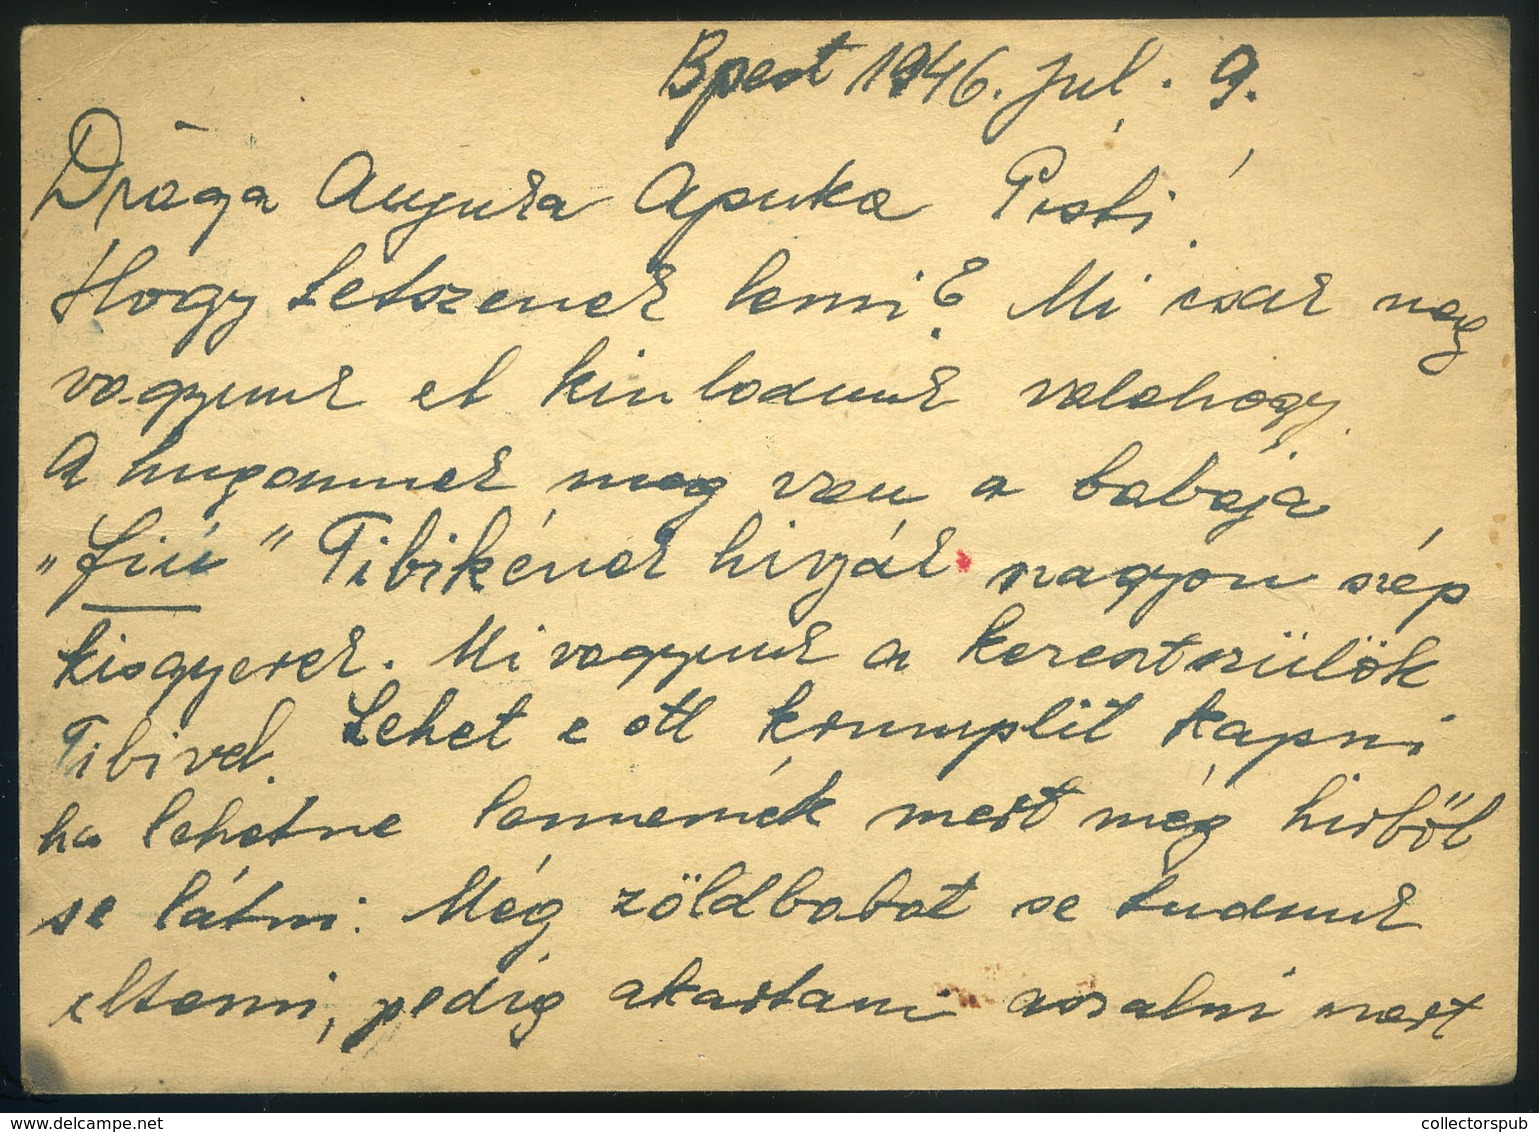 Bpest 1946. júl. 9.
Drága Anyuka Apuka Pisti!
Hogy tetszenek lenni? Mi csak meg
vagyunk el kinlodunk valahogy.
A hugomnek meg van a babája
„fiú" Tibikének hivják nagyon szép
kisgyerek. Mi vagyunk a keresztszülök
Tibivel. Lehet e ott krumplit kapni
ha lehetne lemennék mert még hirböl
se látni. Még zöldbabot se tudunk
eltenni, pedig akartam aszalni mert
collectorspub